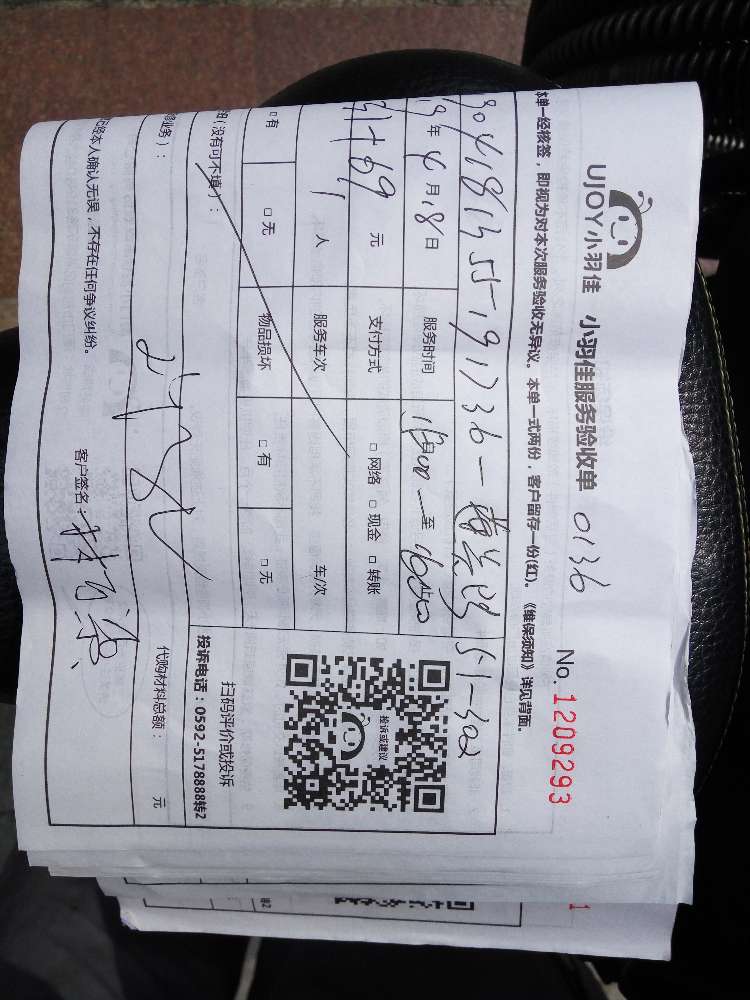 UJOY小羽佳 小羽佳服务验收单 0136
No.1209293
本单一经核签，即视为对本次服务验收无异议。本单一式两份，客户留存一份(红)。《维保须知》详见背面。
51-302
9年4月18日 服务时间 至
31+69 元 支付方式 □网络 □现金 □转账
1 人 服务车次 车次
□有 □无 物品损坏 □有 □无
(没有可不填)：
投诉或建议
扫码评价或投诉
投诉电话：0592-5178888转2
业务)：
代购材料总额： 元
本人确认无误，不存在任何争议纠纷。
客户签名：